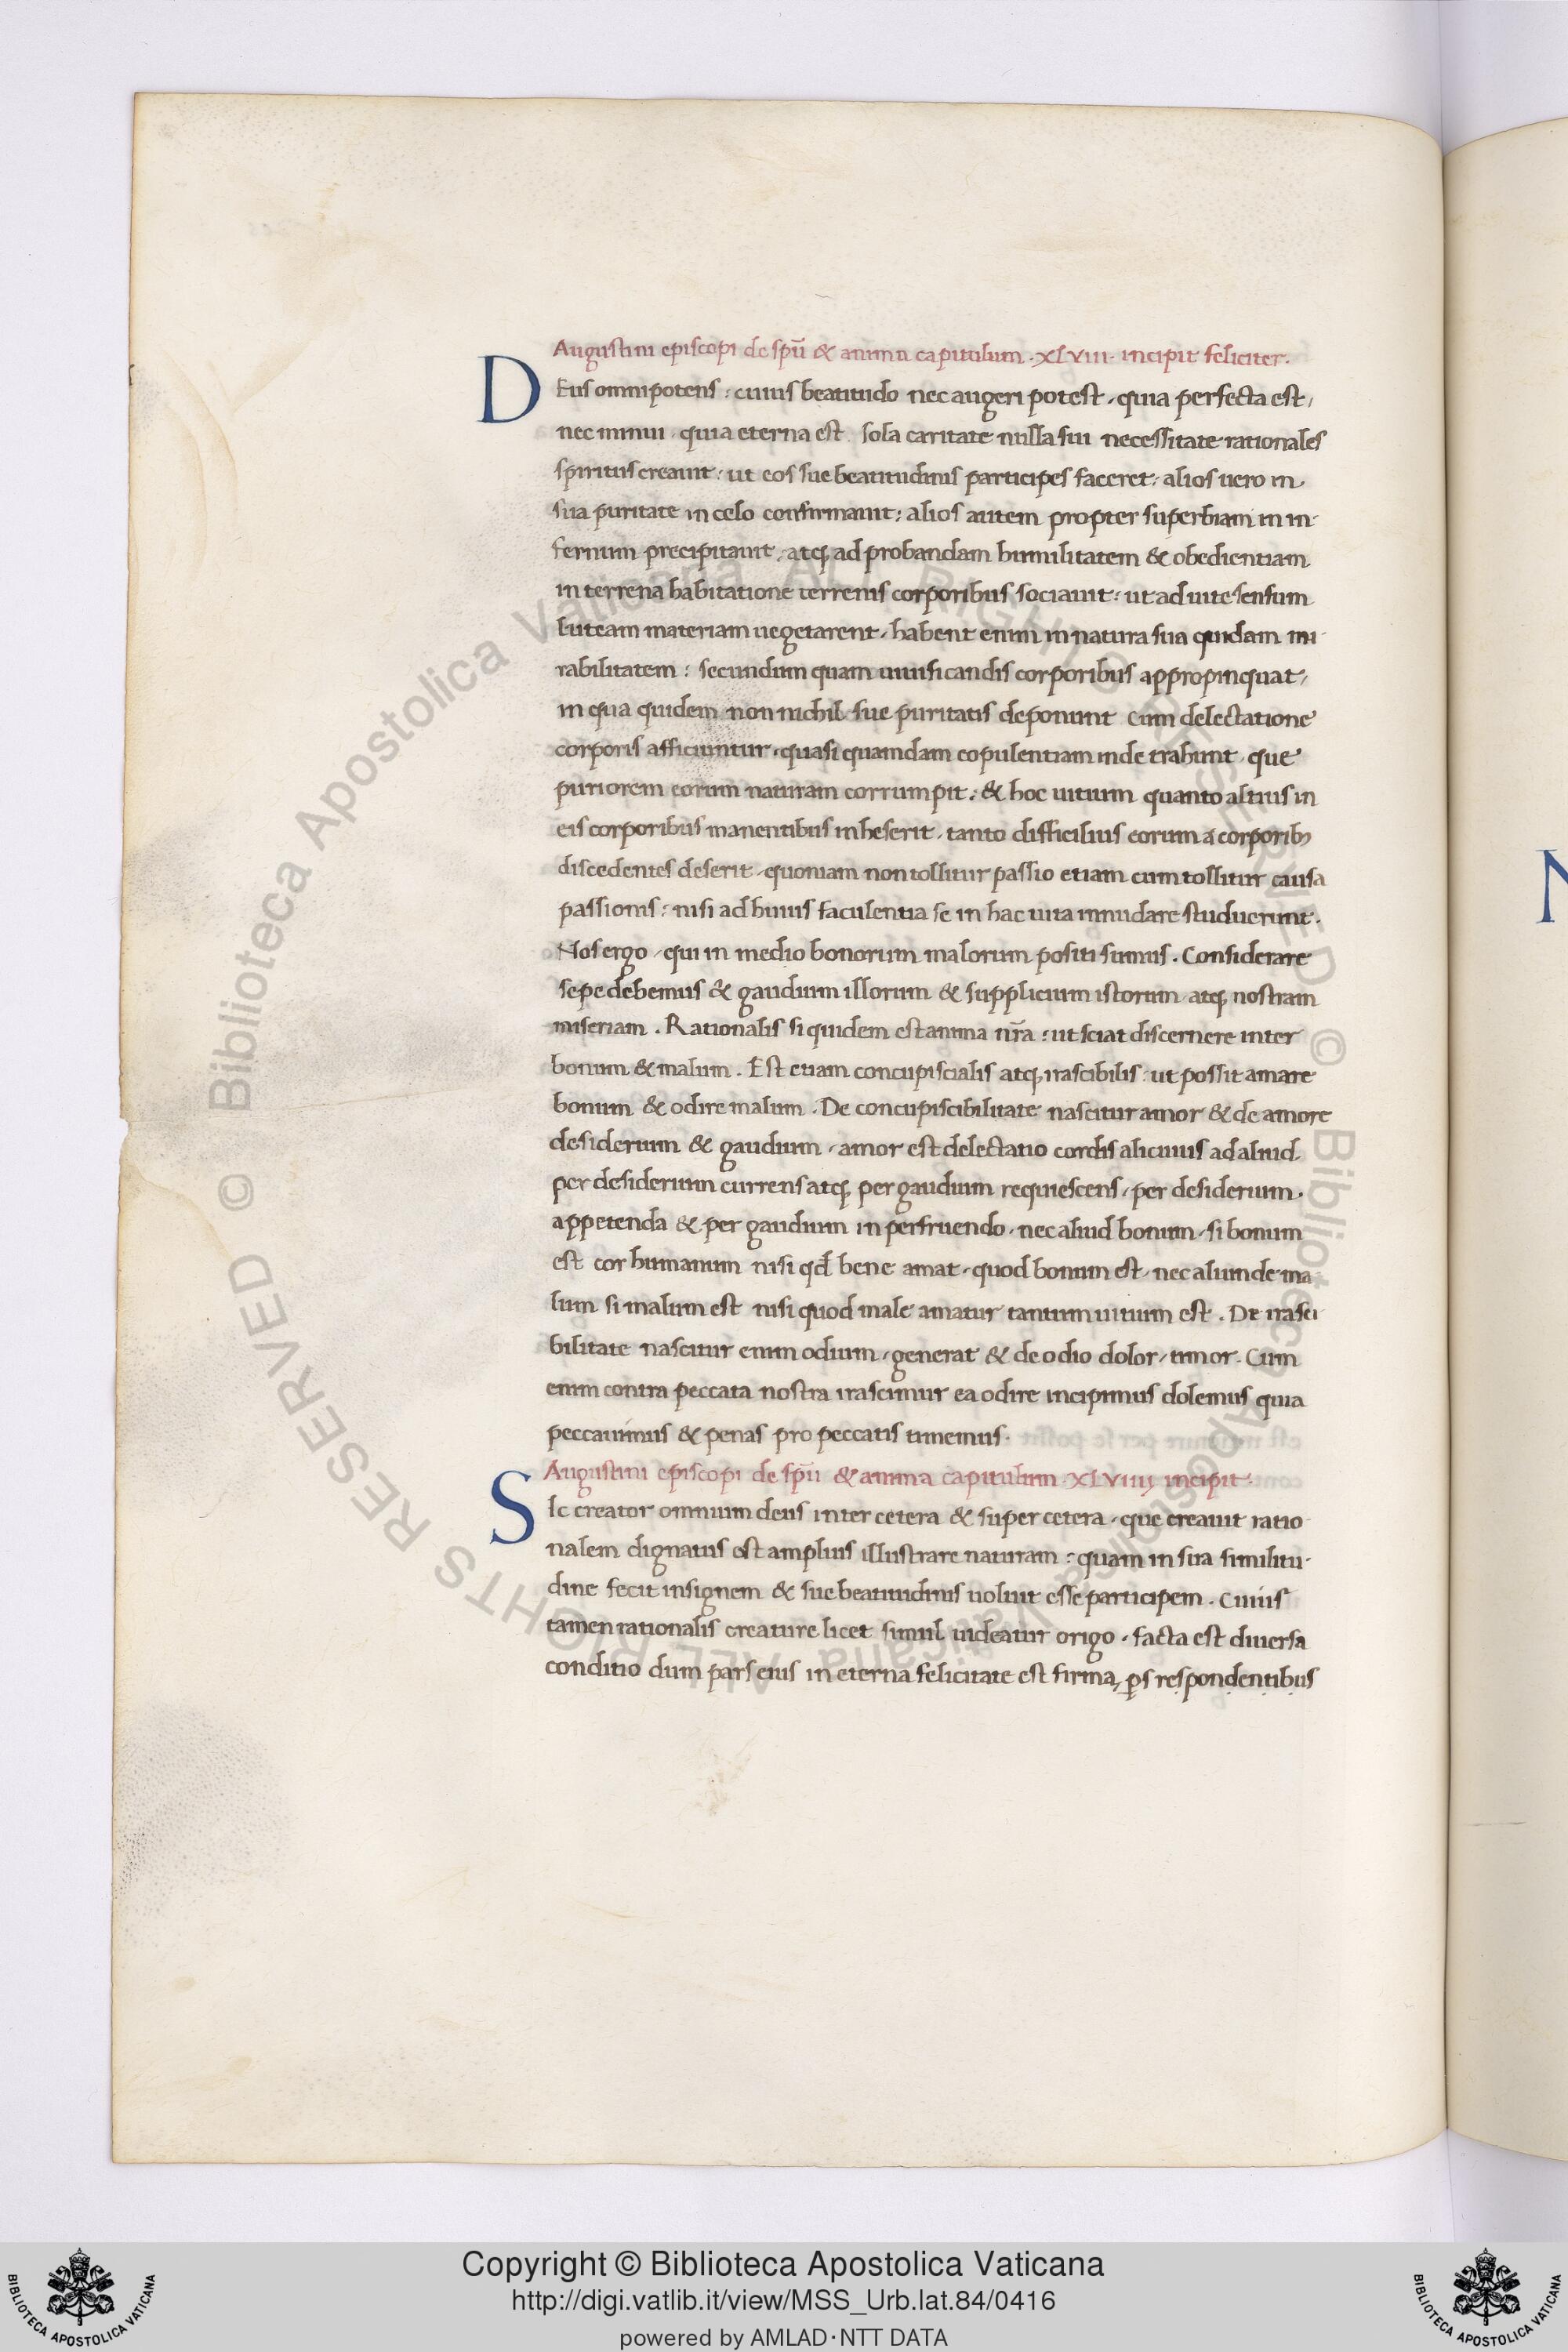 Augustini episcopi de spū & anima capitulum · XLVIII · incipit feliciter.
DEus omnipotens : cuius beatitudo nec augeri potest , quia perfecta est ,
nec minui , quia eterna est . sola caritate nulla sui necessitate rationales
spiritus creauit : ut eos sue beatitudinis participes faceret : alios uero in
sua puritate in celo confirmauit : alios autem propter superbiam in in-
fernum precipitauit , atq; ad probandam humilitatem & obedientiam
in terrena habitatione terrenis corporibus sociauit : ut ad uite sensum
luteam materiam uegetarent , habent enim in natura sua quidam mi-
rabilitatem : secundum quam uiuificandis corporibus appropinquat ,
in qua quidem non nichil sue puritatis deponunt Cum delectatione
corporis afficiuntur , quasi quamdam eopulentiam inde trahunt , que
puriorem eorum naturam corrumpit : & hoc uitium quanto altius in
eis corporibus manentibus inheserit , tanto difficilius eorum a corporib;
discedentes deserit , quoniam non tollitur passio etiam cum tollitur causa
passionis : nisi ad huius faculentia se in hac uita mudare studuerunt .
Nos ergo , qui in medio bonorum malorum positi sumus . Considerare
sepe debemus & gaudium illorum & supplicium istorum atq; nostram
miseriam . Rationalis si quidem est anima nr̄a : ut sciat discernere inter
bonum & malum . Est etiam concupiscialis atq; irascibilis : ut possit amare
bonum & odire malum . De concupiscibilitate nascitur amor & de amore
desiderium & gaudium , amor est delectatio cordis alicuius ad aliud
per desiderium currens atq; per gaudium requiescens , per desiderium .
appetenda & per gaudium in perfruendo , nec aliud bonum , si bonum
est cor humanum nisi qd bene amat , quod bonum est , nec aliunde ma
lum si malum est nisi quod male amatur tantum uitium est . De irasci
bilitate nascitur enim odium , generat & de odio dolor , timor . Cum
enim contra peccata nostra irascimur ea odire incipimus dolemus quia
peccauimus & penas pro peccatis timemus .
Augustini episcopi de spū & anima capitulum · XLVIIII incipit .
SIc creator omnium deus inter cetera & super cetera , que creauit ratio
nalem dignatus est amplius illustrare naturam : quam in sua similitu-
dine fecit insignem & sue beatitudinis uoluit esse participem . Cuius
tamen rationalis creature licet simul uideatur origo , facta est diuersa
conditio dum pars eius in eterna felicitate est firma , ꝑs respondentibus
N
© Biblioteca Apostolica Vaticana ALL RIGHTS RESERVED © Biblioteca Apostolica Vaticana ALL RIGHTS RESERVED
Copyright © Biblioteca Apostolica Vaticana
http://digi.vatlib.it/view/MSS_Urb.lat.84/0416
powered by AMLAD·NTT DATA
BIBLIOTECA APOSTOLICA VATICANA
BIBLIOTECA APOSTOLICA VATICANA